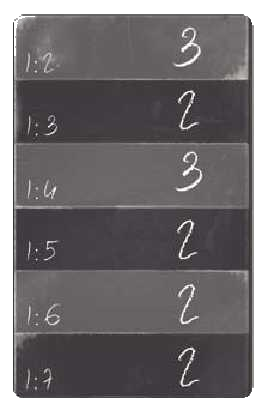 1:2 3
1:3 2
1:4 3
1:5 2
1:6 2
1:7 2